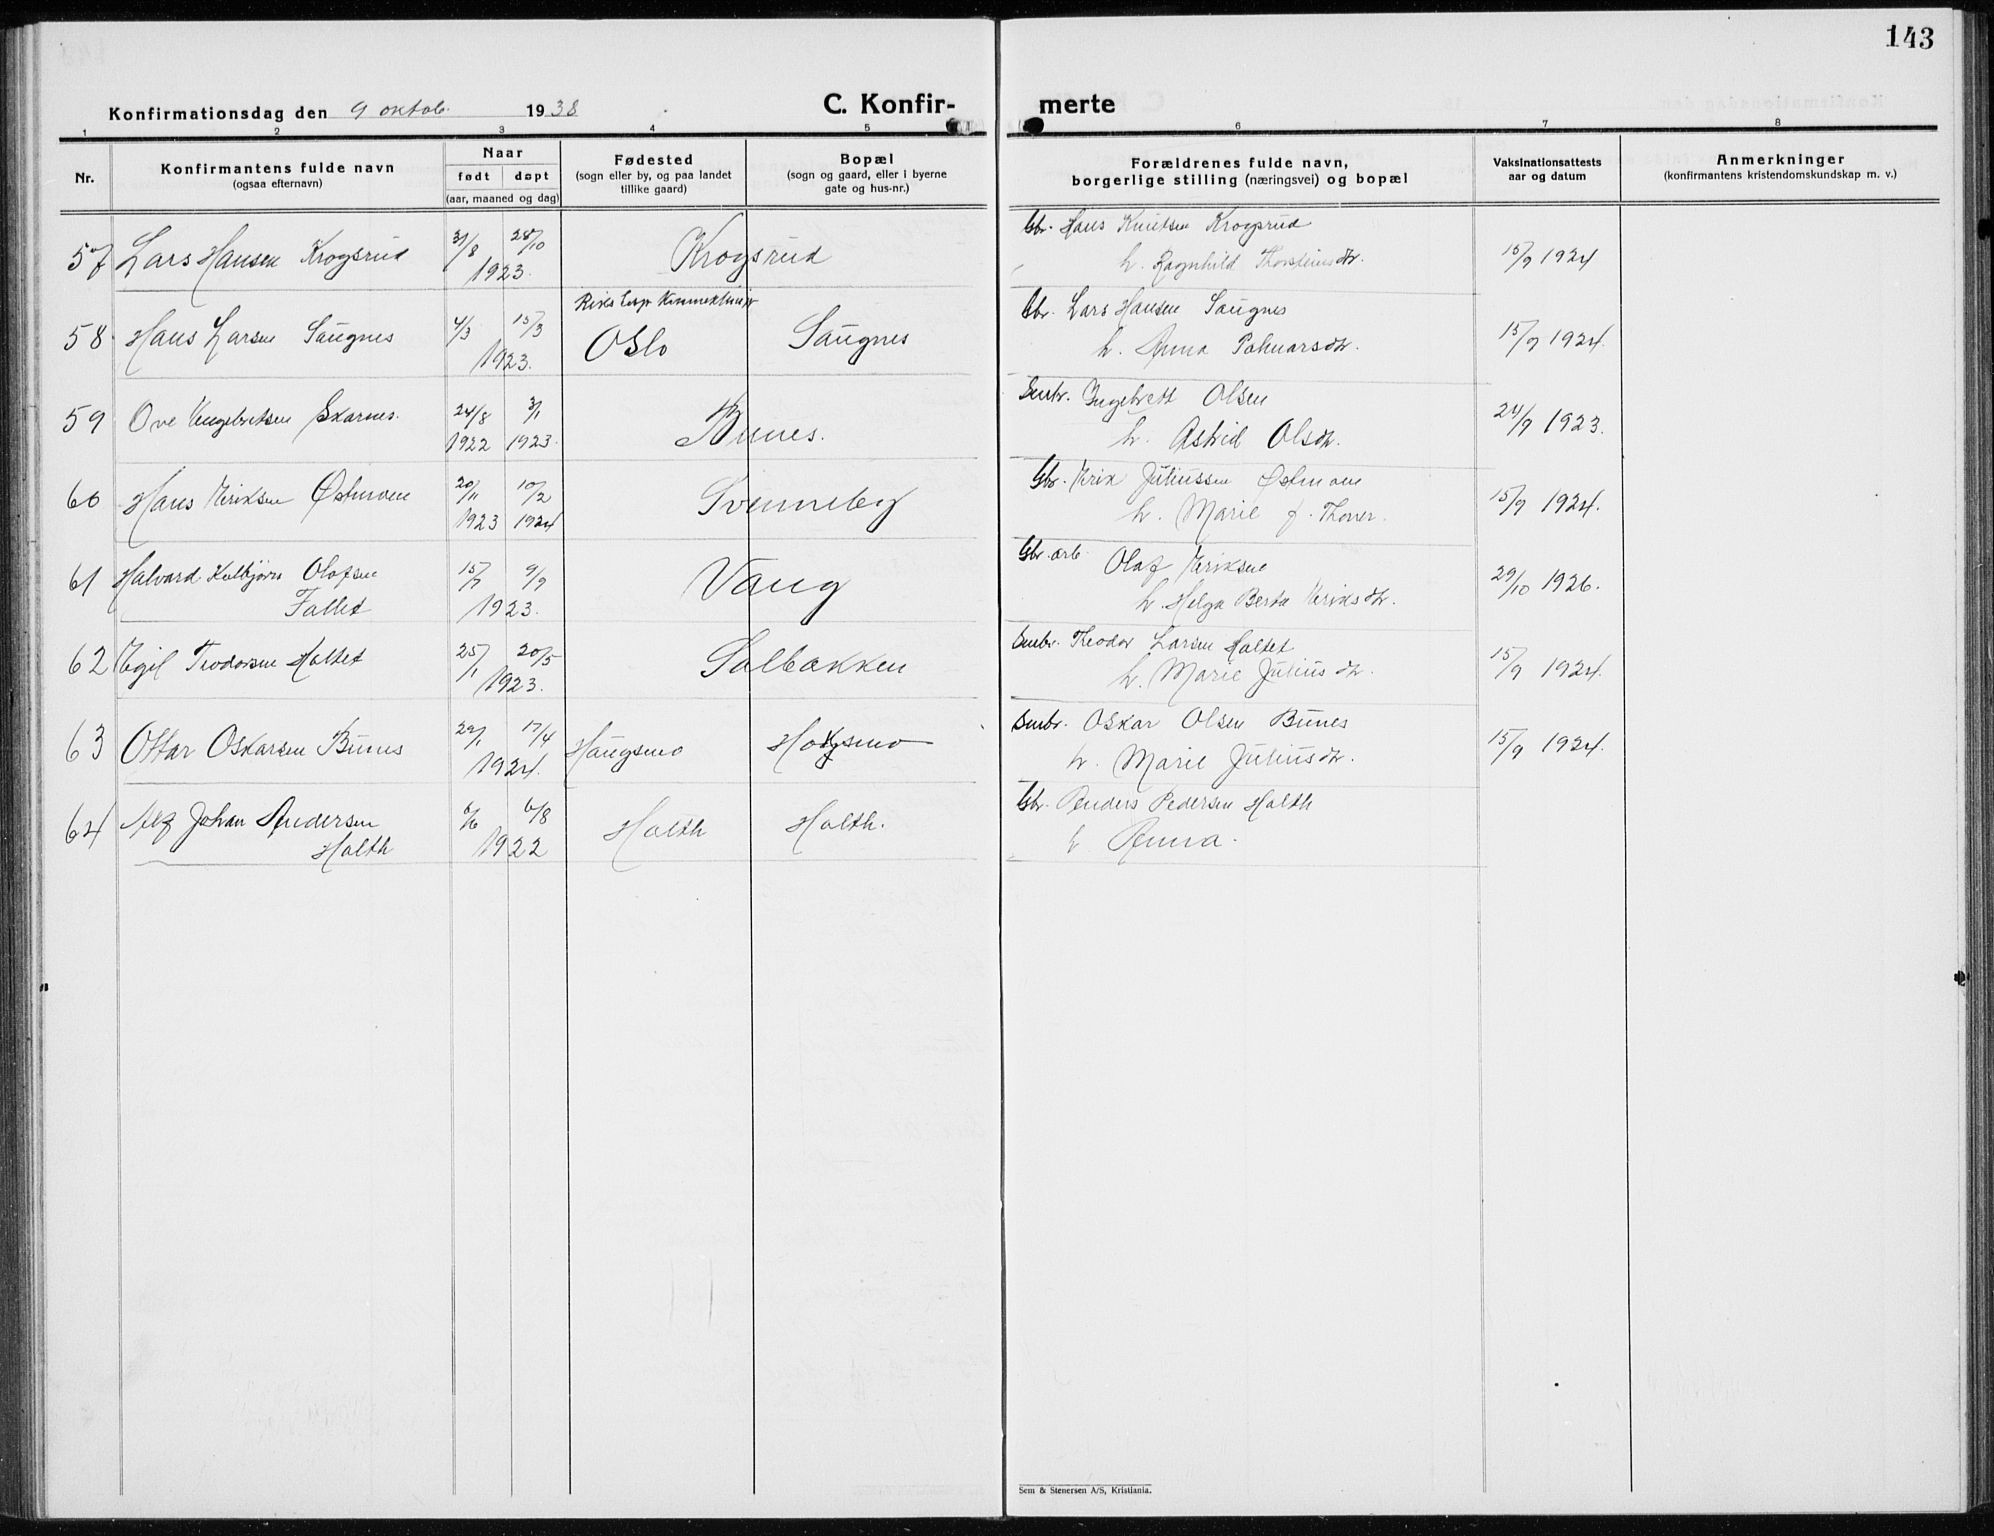 143
Konfirmationsdag den 9 oktob. 1938
C. Konfir- merte
1 2 3 4 5 6 7 8
Nr.
Konfirmantens fulde navn
(ogsaa efternavn)
Naar
født døpt
(aar, maaned og dag)
Fødested
(sogn eller by, og paa landet
tillike gaard)
Bopæl
(sogn og gaard, eller i byerne
gate og hus-nr.)
Forældrenes fulde navn,
borgerlige stilling (næringsvei) og bopæl
Vaksinationsattests
aar og datum
Anmerkninger
(konfirmantens kristendomskundskap m. v.)
57 Lars Hansen Krogsrud 31/8 28/10 1923. Krogsrud
Gbr. Hans Knutsen Krogsrud
h. Ragnhild Thorsteinsdtr. 15/9 1924
58 Hans Larsen Saugnes 4/3 15/3 1923. Oslo Saugnes
Gbr. Lars Hansen Saugnes
h. Anna 15/9 1924.
59 Ove Engebretsen Skarnes. 24/8 1922 3/1 1923. Bunes.
Smbr. Ingebrett Olsen
h. Astrid Olsdtr. 24/9 1923.
60 Hans Eriksen Østmoen 20/11 1923 10/2 1924 Svenneby
Gbr. Erik Juliussen Østmoen
h. Marie f. 15/9 1924.
61 Halvard Kolbjørn Olafsen
Fallet 15/7 9/9 1923. Vang
Gbr. arb. Olaf Eriksen
h. Helga Berta Eriksdtr. 29/10 1926.
62 Egil Teodorsen Holtet 25/1 20/5 1923. Solbakken
Smbr. Theodor Larsen Holtet
h. Marie Juliusdtr. 15/9 1924.
63 Ottar Oskarsen Bunes 29/1 17/4 1924. Haugsmo Haugsmo
Smbr. Oskar Olsen Bunes
h. Marie Juliusdtr. 15/9 1924.
64 Alf Johan Andersen
Holth 6/6 6/8 1922 Holth Holth.
Gbr. Anders Pedersen Holth
h Anna.
Sem & Stenersen A/S, Kristiania.